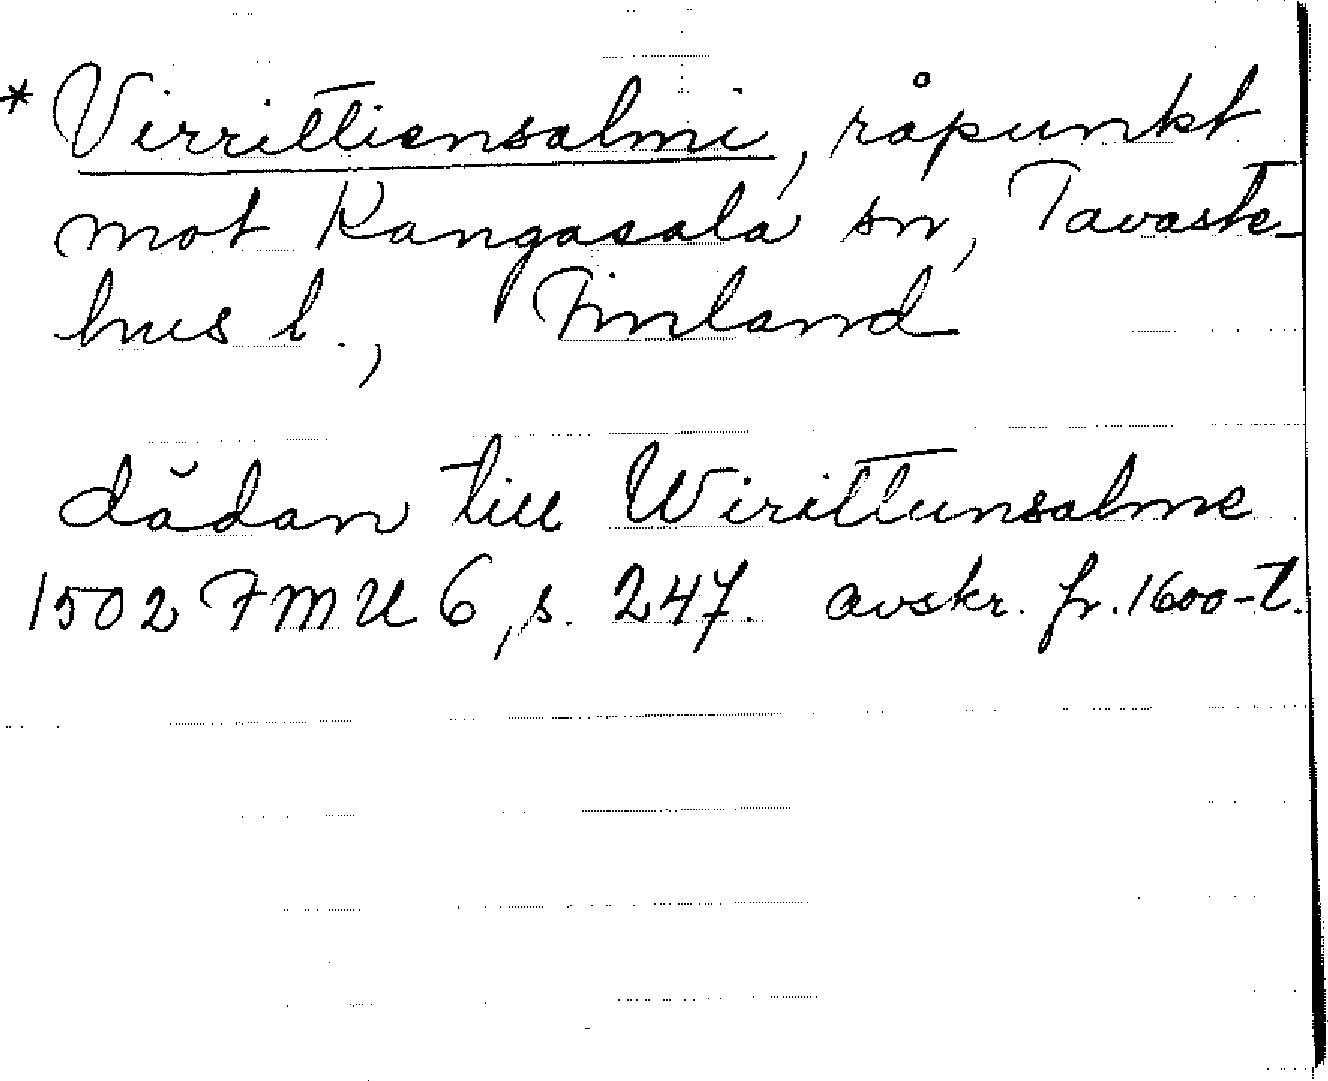 * Virrittiensalmi, råpunkt
mot Kangasala sn, Tavaste-
hus l., Finland
dådan till Wirittunsalme
1502 FMU 6, s. 247. avskr. fr. 1600-t.